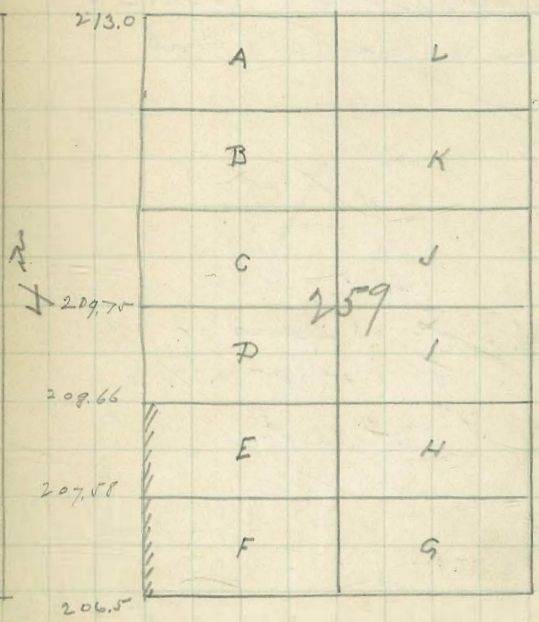 213.0
A L
B K
C J
209.75 259
D I
208.66
E H
207.58
F G
206.5